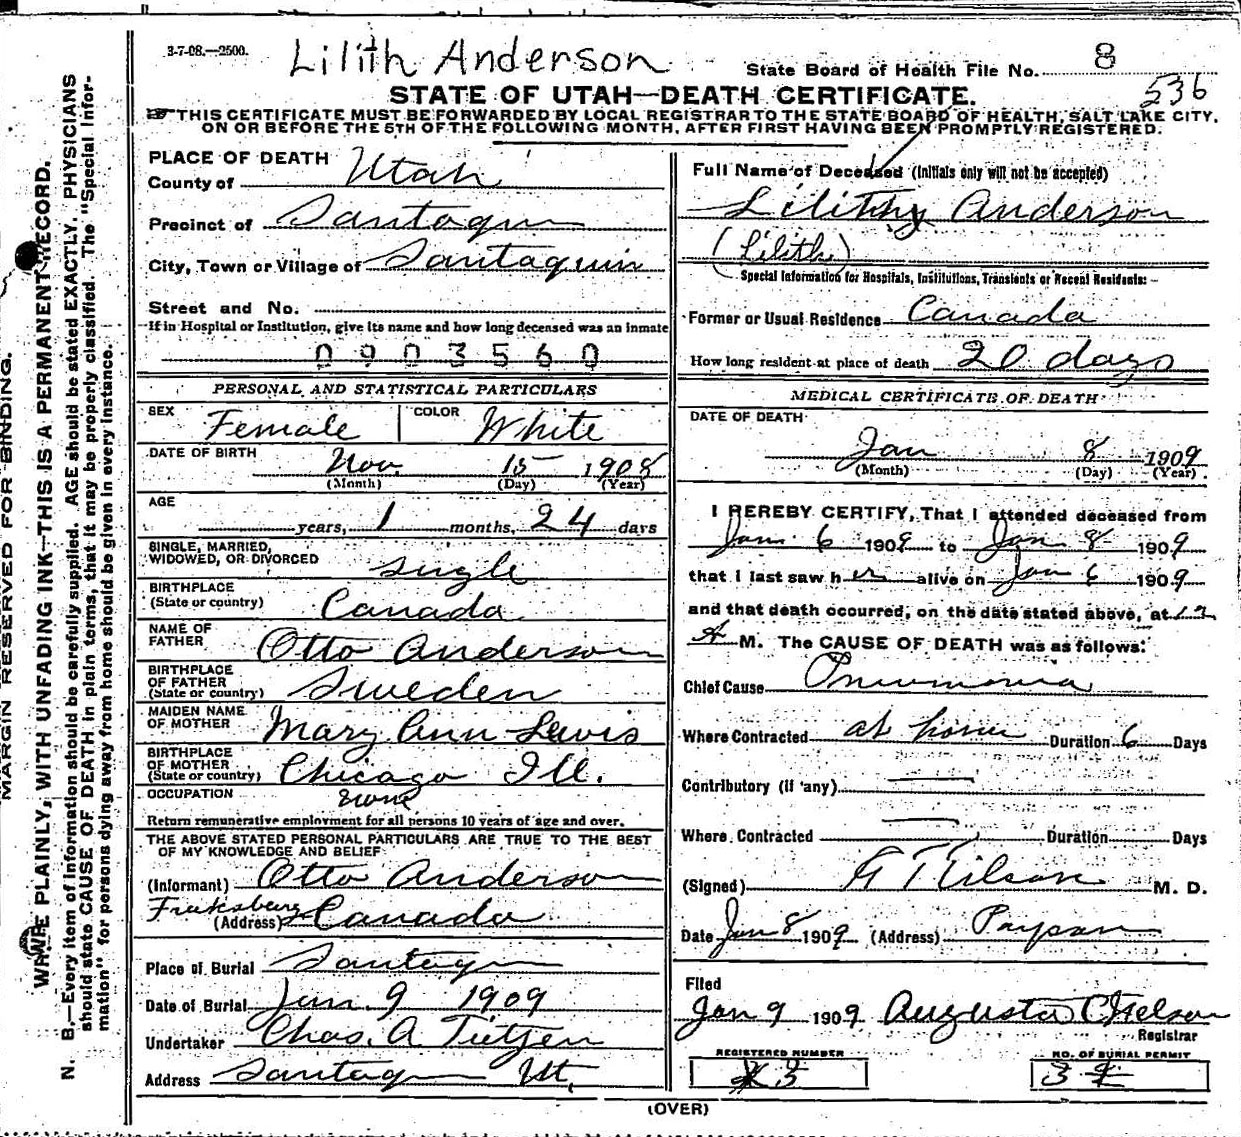 3-7-08.—2500.
Lilith Anderson
State Board of Health File No. 8
536
STATE OF UTAH—DEATH CERTIFICATE.
THIS CERTIFICATE MUST BE FORWARDED BY LOCAL REGISTRAR TO THE STATE BOARD OF HEALTH, SALT LAKE CITY,
ON OR BEFORE THE 5TH OF THE FOLLOWING MONTH, AFTER FIRST HAVING BEEN PROMPTLY REGISTERED.
PLACE OF DEATH
County of Utah
Precinct of Santaqun
City, Town or Village of Santaquin
Street and No.
If in Hospital or Institution, give its name and how long deceased was an inmate
0903560
PERSONAL AND STATISTICAL PARTICULARS
SEX Female COLOR White
DATE OF BIRTH Nov. 15 1908
(Month) (Day) (Year)
AGE
years, 1 months, 24 days
SINGLE, MARRIED,
WIDOWED, OR DIVORCED single
BIRTHPLACE
(State or country) Canada
NAME OF
FATHER Otto Anderson
BIRTHPLACE
OF FATHER
(State or country) Sweden
MAIDEN NAME
OF MOTHER Mary Ann Lewis
BIRTHPLACE
OF MOTHER
(State or country) Chicago Ill.
OCCUPATION none
Return remunerative employment for all persons 10 years of age and over.
THE ABOVE STATED PERSONAL PARTICULARS ARE TRUE TO THE BEST
OF MY KNOWLEDGE AND BELIEF
(Informant) Otto Anderson
(Address) Canada
Place of Burial Santaqun
Date of Burial Jan. 9 1909
Undertaker Chas. A. Tietjen
Address Santaqun Ut.
Full Name of Deceased (Initials only will not be accepted)
Lilithy Anderson
(Lilith)
Special Information for Hospitals, Institutions, Transients or Recent Residents:—
Former or Usual Residence Canada
How long resident at place of death 20 days
MEDICAL CERTIFICATE OF DEATH
DATE OF DEATH
Jan 8 1909
(Month) (Day) (Year)
I HEREBY CERTIFY, That I attended deceased from
Jan. 6 1909 to Jan 8 1909
that I last saw her alive on Jan 6 1909
and that death occurred, on the date stated above, at 12
A M. The CAUSE OF DEATH was as follows:
Chief Cause Pneumonia
Where Contracted at home Duration 6 Days
Contributory (if any)
Where Contracted Duration Days
(Signed) M. D.
Date Jan 8 1909 (Address) Payson
Filed
Jan 9 1909 Augusta
Registrar
REGISTERED NUMBER
3
NO. OF BURIAL PERMIT
3
(OVER)
MARGIN RESERVED FOR BINDING.
WRITE PLAINLY, WITH UNFADING INK—THIS IS A PERMANENT RECORD.
N. B.—Every item of information should be carefully supplied. AGE should be stated EXACTLY. PHYSICIANS
should state CAUSE OF DEATH in plain terms, that it may be properly classified. The "Special Infor-
mation" for persons dying away from home should be given in every instance.